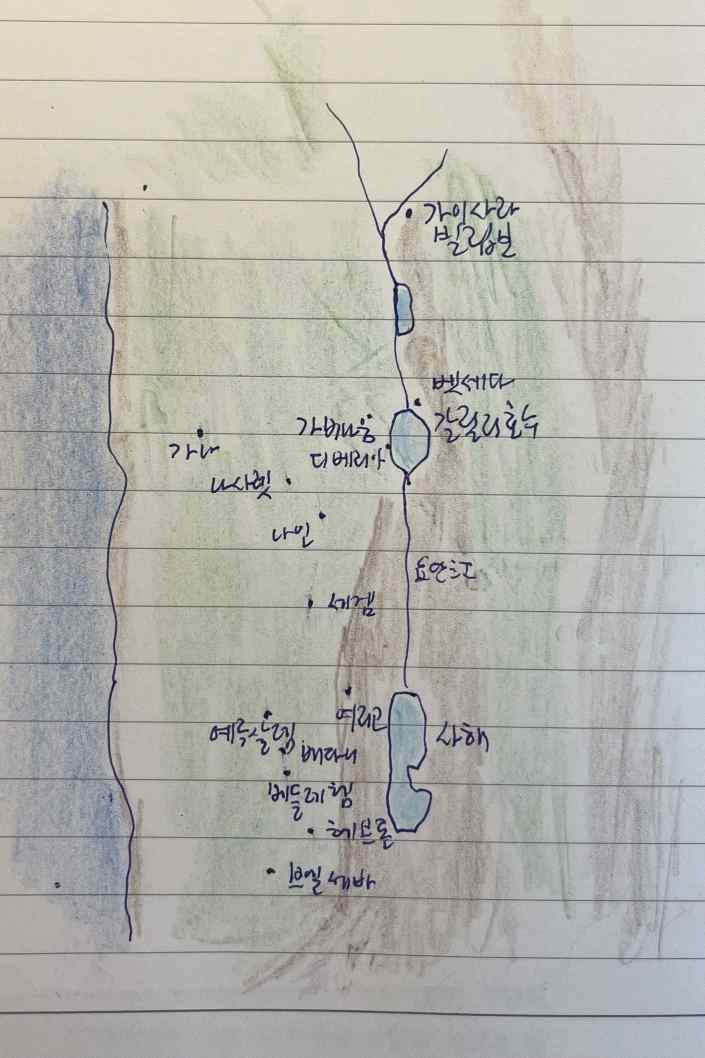 가이사랴
빌립보
벳세다
갈릴리호수
가버나움
디베리아
가나
나사렛
나인
세겜
여리고
예루살렘
사해
베다니
베들레헴
헤브론
브엘세바